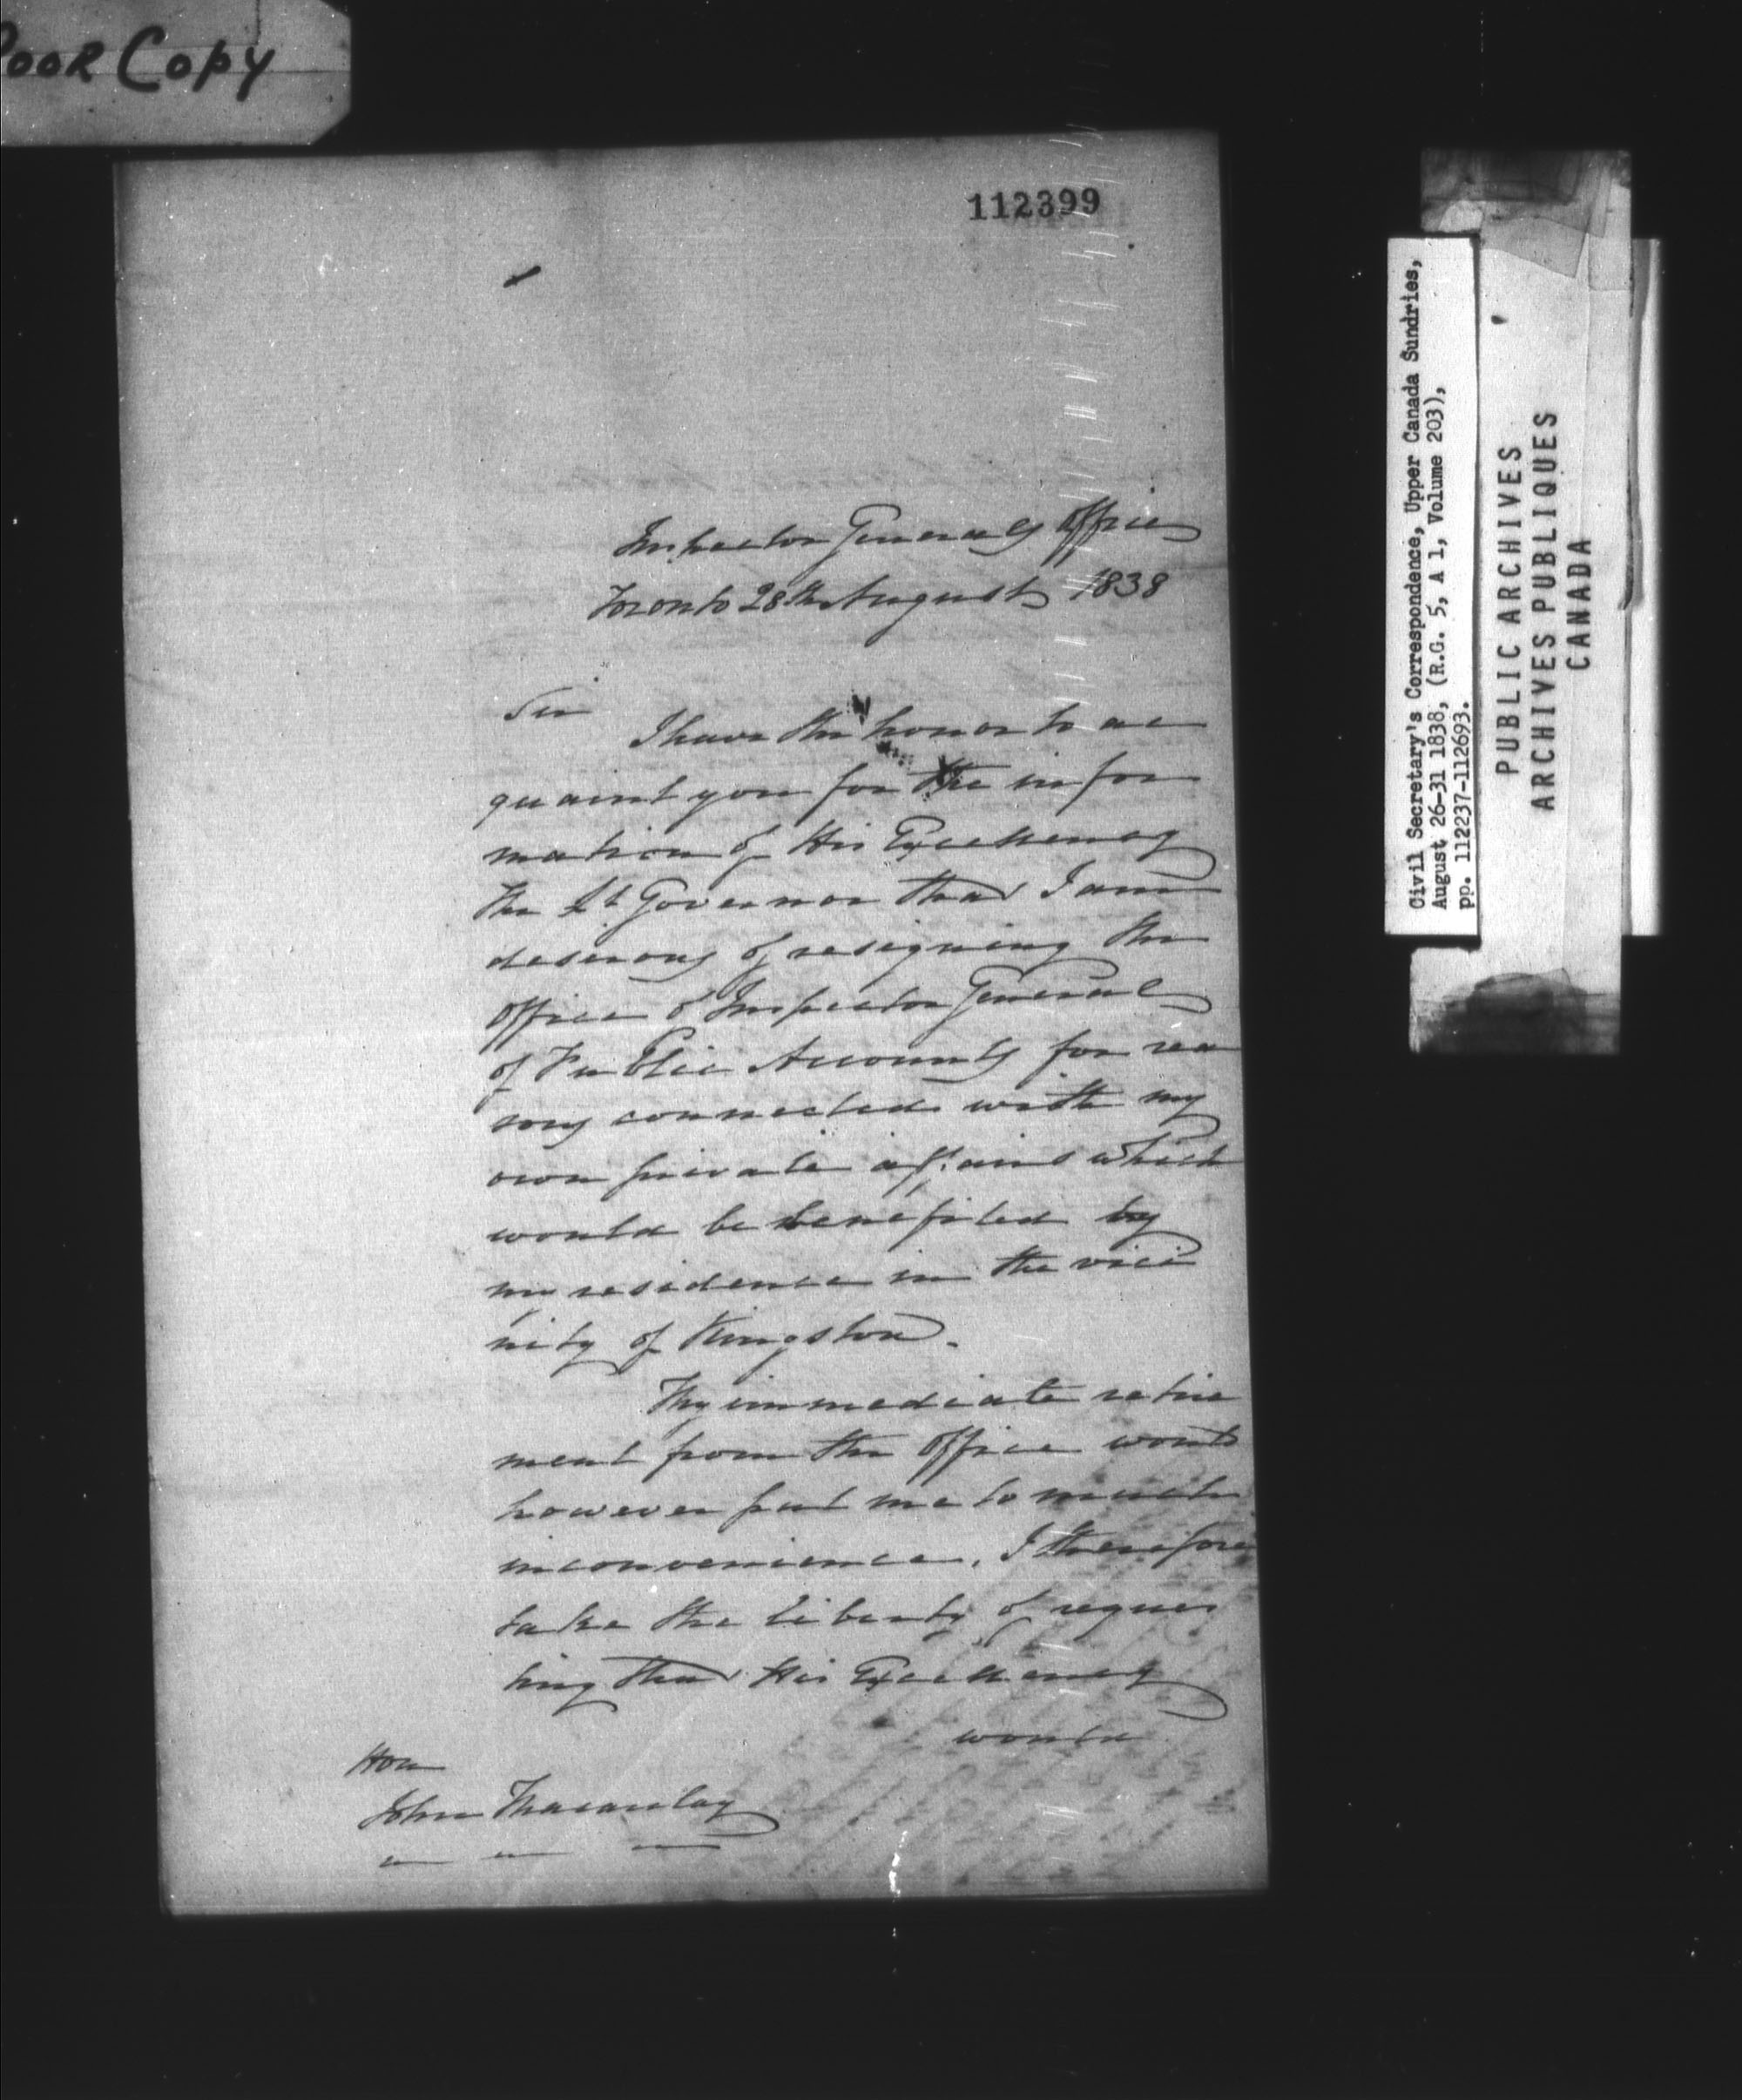 POOR COPY
112399
Inspector Generals Office
Toronto 28th August 1838
Sir
I have the honor to ac
quaint you for the infor
mation of His Excellency
the Lt Governor that I am
desirous of resigning the
Office of Inspector General
of Public Accounts for rea
sons connected with my
own private affairs which
would be benefited by
my residence in the vici
nity of Kingston.
My immediate retire
ment from the Office would
however put me to much
inconvenience. I therefore
take the liberty of reques
ting that His Excellency
would
Hon
John Macaulay
Civil Secretary's Correspondence, Upper Canada Sundries,
August 26-31 1838, (R.G. 5, A 1, Volume 203),
pp. 112237-112693.
PUBLIC ARCHIVES
ARCHIVES PUBLIQUES
CANADA